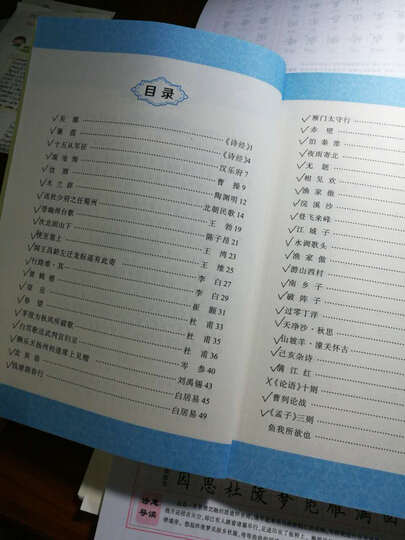 目录
✓关雎 《诗经》1
✓蒹葭 《诗经》4
✓十五从军征 汉乐府7
✓观沧海 曹操9
✓饮酒 陶渊明12
✓木兰辞 北朝民歌14
✓送杜少府之任蜀州 王勃19
✓登幽州台歌 陈子昂21
✓次北固山下 王湾23
✓使至塞上 王维25
✓闻王昌龄左迁龙标遥有此寄 李白27
✓行路难·其一 李白29
✓黄鹤楼 崔颢31
✓望岳 杜甫33
✓春望 杜甫35
✓茅屋为秋风所破歌 杜甫36
✓白雪歌送武判官归京 岑参40
✓酬乐天扬州初逢席上见赠 刘禹锡43
✓卖炭翁 白居易45
✓钱塘湖春行 白居易49
✓雁门太守行
✓赤壁
✓泊秦淮
✓夜雨寄北
✓无题
✓相见欢
✓渔家傲
✓浣溪沙
✓登飞来峰
✓江城子
✓水调歌头
✓渔家傲
✓游山西村
✓南乡子
✓破阵子
✓过零丁洋
✓天净沙·秋思
✓山坡羊·潼关怀古
✓己亥杂诗
✓满江红
X《论语》十则
✓曹刿论战
✓《孟子》三则
鱼我所欲也
导读
因思杜陵梦凫雁满回